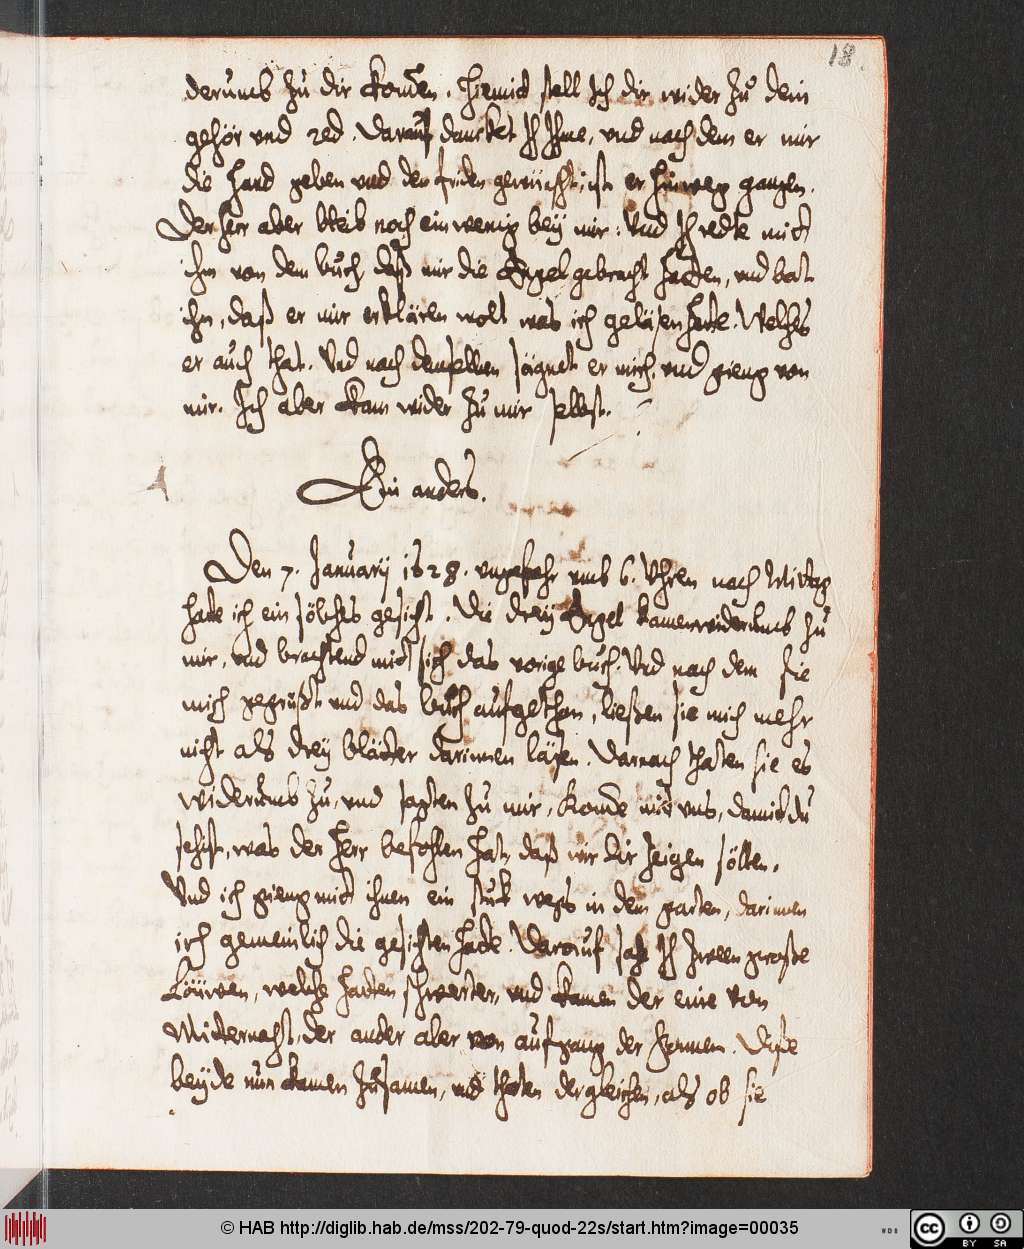 18.
derumb zu dir komen. Hiemit stell Ich dir wider zu dein
gehör vnd red. Darauf dancket Ich Ihme, vnd nach dem er mir
die Hand geben vnd den friden gewüscht, ist er hinweg gangen.
Der Herr aber bleib noch ein wenig bey mir: Vnd Ich redte mit
ihm von dem buch daß mir die Engel gebracht hatten, vnd bat
ihn, daß er mir erklären wolt was ich geläsen hette. Welches
er auch that. Vnd nach demselben sägnet er mich, vnd gieng von
mir. Ich aber kam wider zu mir selbst.
Ein anders.
Den 7. Januarij 1628. vngefehr vmb 6. Vhren nach Mittag
hatte ich ein sölches gesicht. Die drey Engel kamen widerumb zu
mir, vnd brachtend mit sich das vorige buch. Vnd nach dem sie
mich gegrüßt vnd das buch aufgethan, ließen sie mich mehr
nicht als drey blätter darinnen läsen. Darnach thaten sie es
widerumb zu, vnd sagten zu mir, komme mit vns, damit du
sehist, was der Herr befohlen hat, daß wir dir zeigen sölten.
Vnd ich gieng mit ihnen ein stuk wegs in dem garten, darinnen
ich gemeinlich die gesichten hatte. Darauf sahe Ich zween große
Löüwen, welche hatten schwerter, vnd kamen der eine von
Mitternacht, der ander aber von aufgang der Sonnen. Diese
beyde nun kamen zusamen, vnd thaten dergleichen, als ob sie
© HAB http://diglib.hab.de/mss/202-79-quod-22s/start.htm?image=00035
WDB
CC BY SA